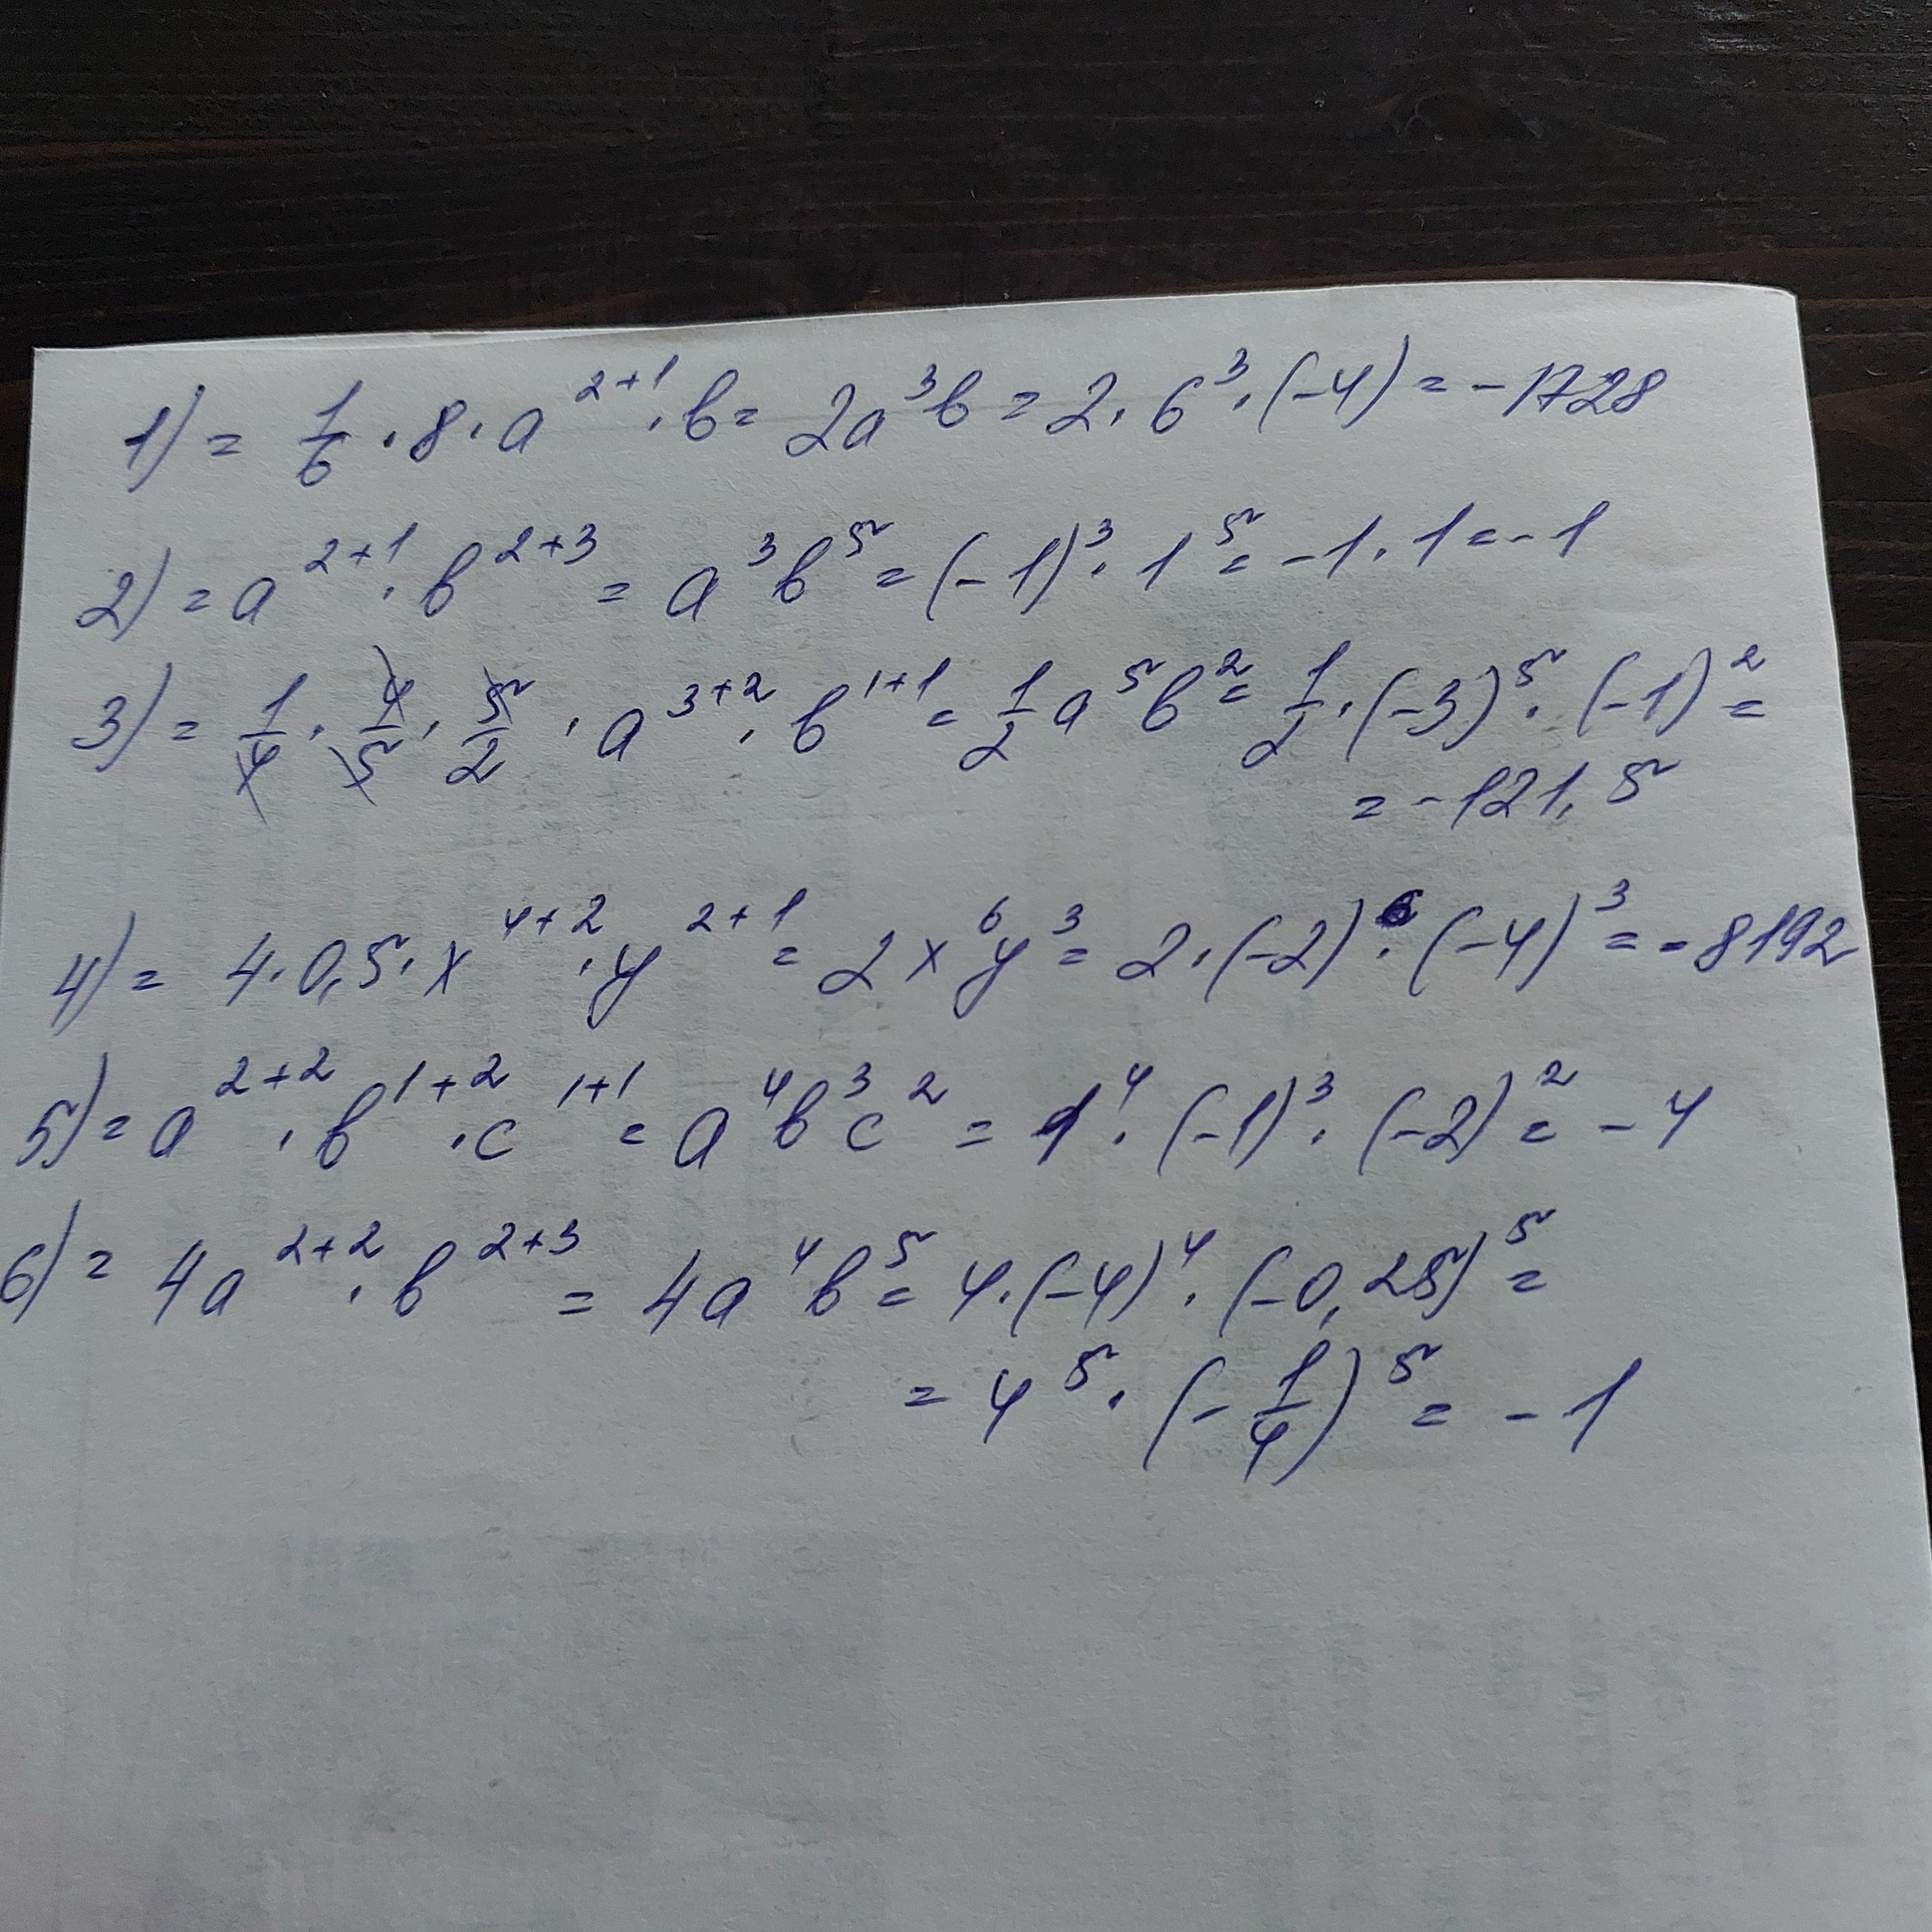 1) = 1/6 · 8 · a^(2+1) · b = 2a³b = 2 · 6³ · (-4) = -1728
2) = a^(2+1) · b^(2+3) = a³b⁵ = (-1)³ · 1⁵ = -1 · 1 = -1
3) = 1/4 · 4/5 · 5/2 · a^(3+2) · b^(1+1) = 1/2 a⁵b² = 1/2 · (-3)⁵ · (-1)² =
= -121,5
4) = 4 · 0,5 · x^(4+2) · y^(2+1) = 2x⁶y³ = 2 · (-2)⁶ · (-4)³ = -8192
5) = a^(2+2) · b^(1+2) · c^(1+1) = a⁴b³c² = 1⁴ · (-1)³ · (-2)² = -4
6) = 4a^(2+2) · b^(2+3) = 4a⁴b⁵ = 4 · (-4)⁴ · (-0,25)⁵ =
= 4⁵ · (-1/4)⁵ = -1